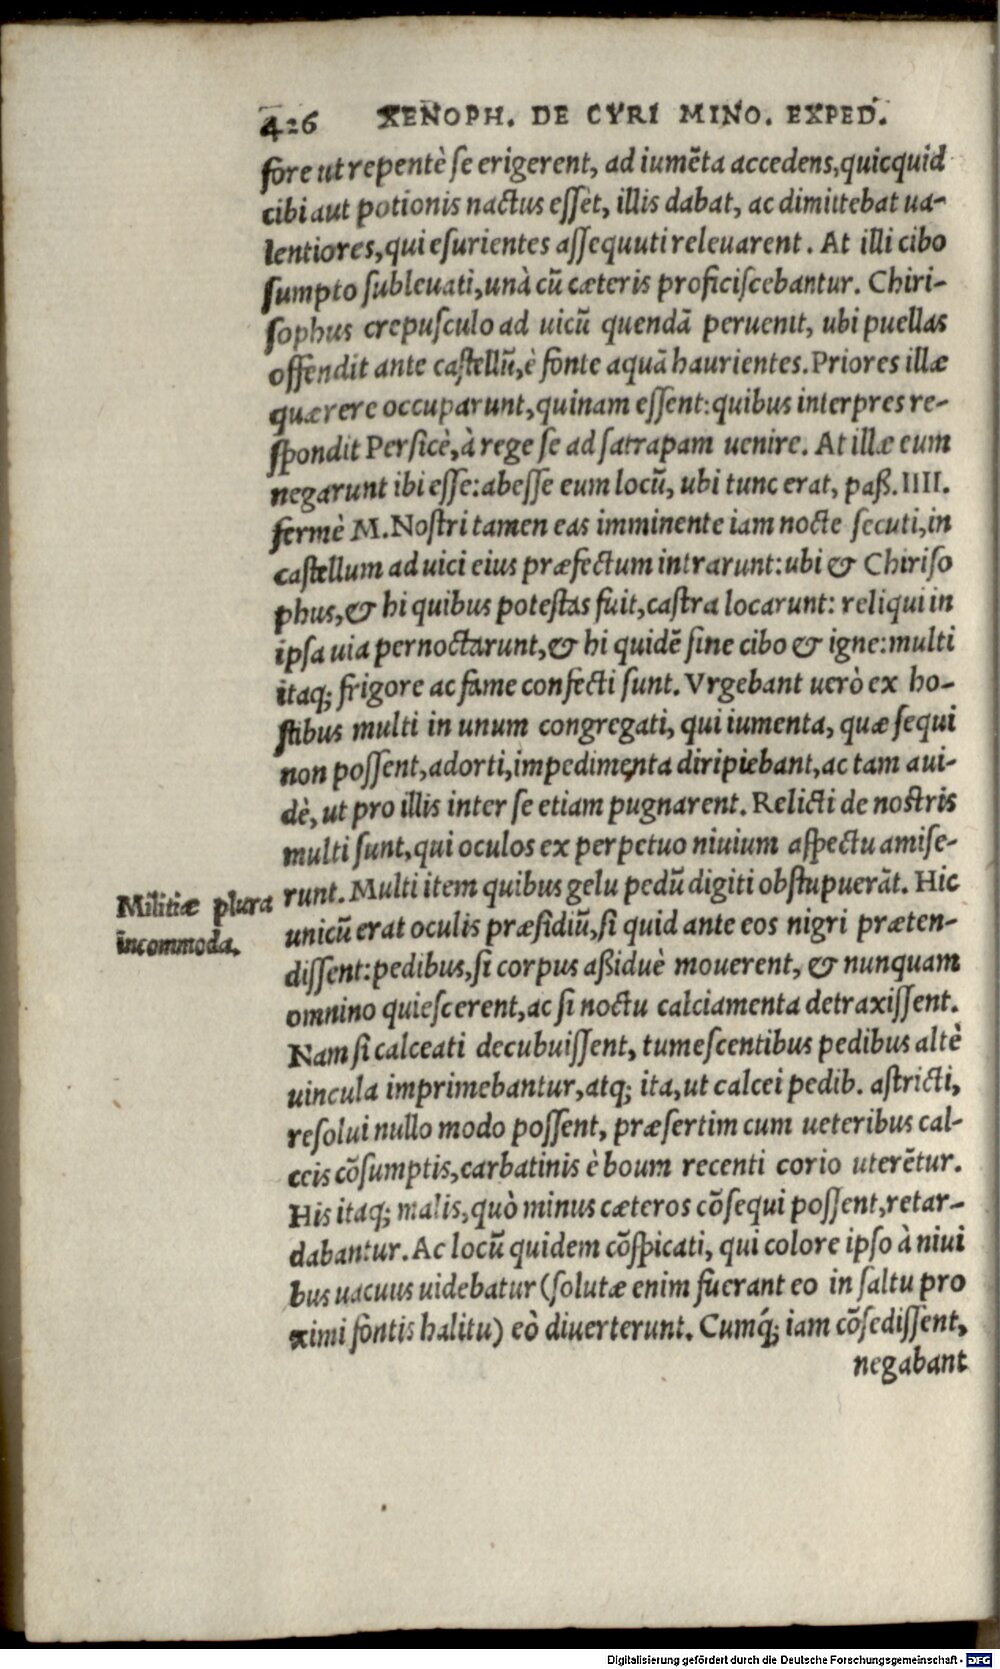 426 XENOPH. DE CYRI MINO. EXPED.
fore ut repentè se erigerent, ad iumẽta accedens, quicquid
cibi aut potionis nactus esset, illis dabat, ac dimittebat ua-
lentiores, qui esurientes assequuti releuarent. At illi cibo
sumpto subleuati, unà cũ cæteris proficiscebantur. Chiri-
sophus crepusculo ad uicũ quendã peruenit, ubi puellas
offendit ante castellũ, è fonte aquã haurientes. Priores illæ
quærere occuparunt, quinam essent: quibus interpres re-
spondit Persicè, à rege se ad satrapam uenire. At illæ eum
negarunt ibi esse: abesse eum locũ, ubi tunc erat, paß. IIII.
fermè M. Nostri tamen eas imminente iam nocte secuti, in
castellum ad uici eius præfectum intrarunt: ubi & Chiriso
phus, & hi quibus potestas fuit, castra locarunt: reliqui in
ipsa uia pernoctarunt, & hi quidẽ sine cibo & igne: multi
itaq; frigore ac fame confecti sunt. Vrgebant uerò ex ho-
stibus multi in unum congregati, qui iumenta, quæ sequi
non possent, adorti, impedimenta diripiebant, ac tam aui-
dè, ut pro illis inter se etiam pugnarent. Relicti de nostris
multi sunt, qui oculos ex perpetuo niuium aspectu amise-
runt. Multi item quibus gelu pedũ digiti obstupuerãt. Hic
Militiæ plura
incommoda.
unicũ erat oculis præsidiũ, si quid ante eos nigri præten-
dissent: pedibus, si corpus aßiduè mouerent, & nunquam
omnino quiescerent, ac si noctu calciamenta detraxissent.
Nam si calceati decubuissent, tumescentibus pedibus altè
uincula imprimebantur, atq; ita, ut calcei pedib. astricti,
resolui nullo modo possent, præsertim cum ueteribus cal-
ceis cõsumptis, carbatinis è boum recenti corio uterẽtur.
His itaq; malis, quò minus cæteros cõsequi possent, retar-
dabantur. Ac locũ quidem cõspicati, qui colore ipso à niui
bus uacuus uidebatur (solutæ enim fuerant eo in saltu pro
ximi fontis halitu) eò diuerterunt. Cumq́; iam cõsedissent,
negabant
Digitalisierung gefördert durch die Deutsche Forschungsgemeinschaft - DFG